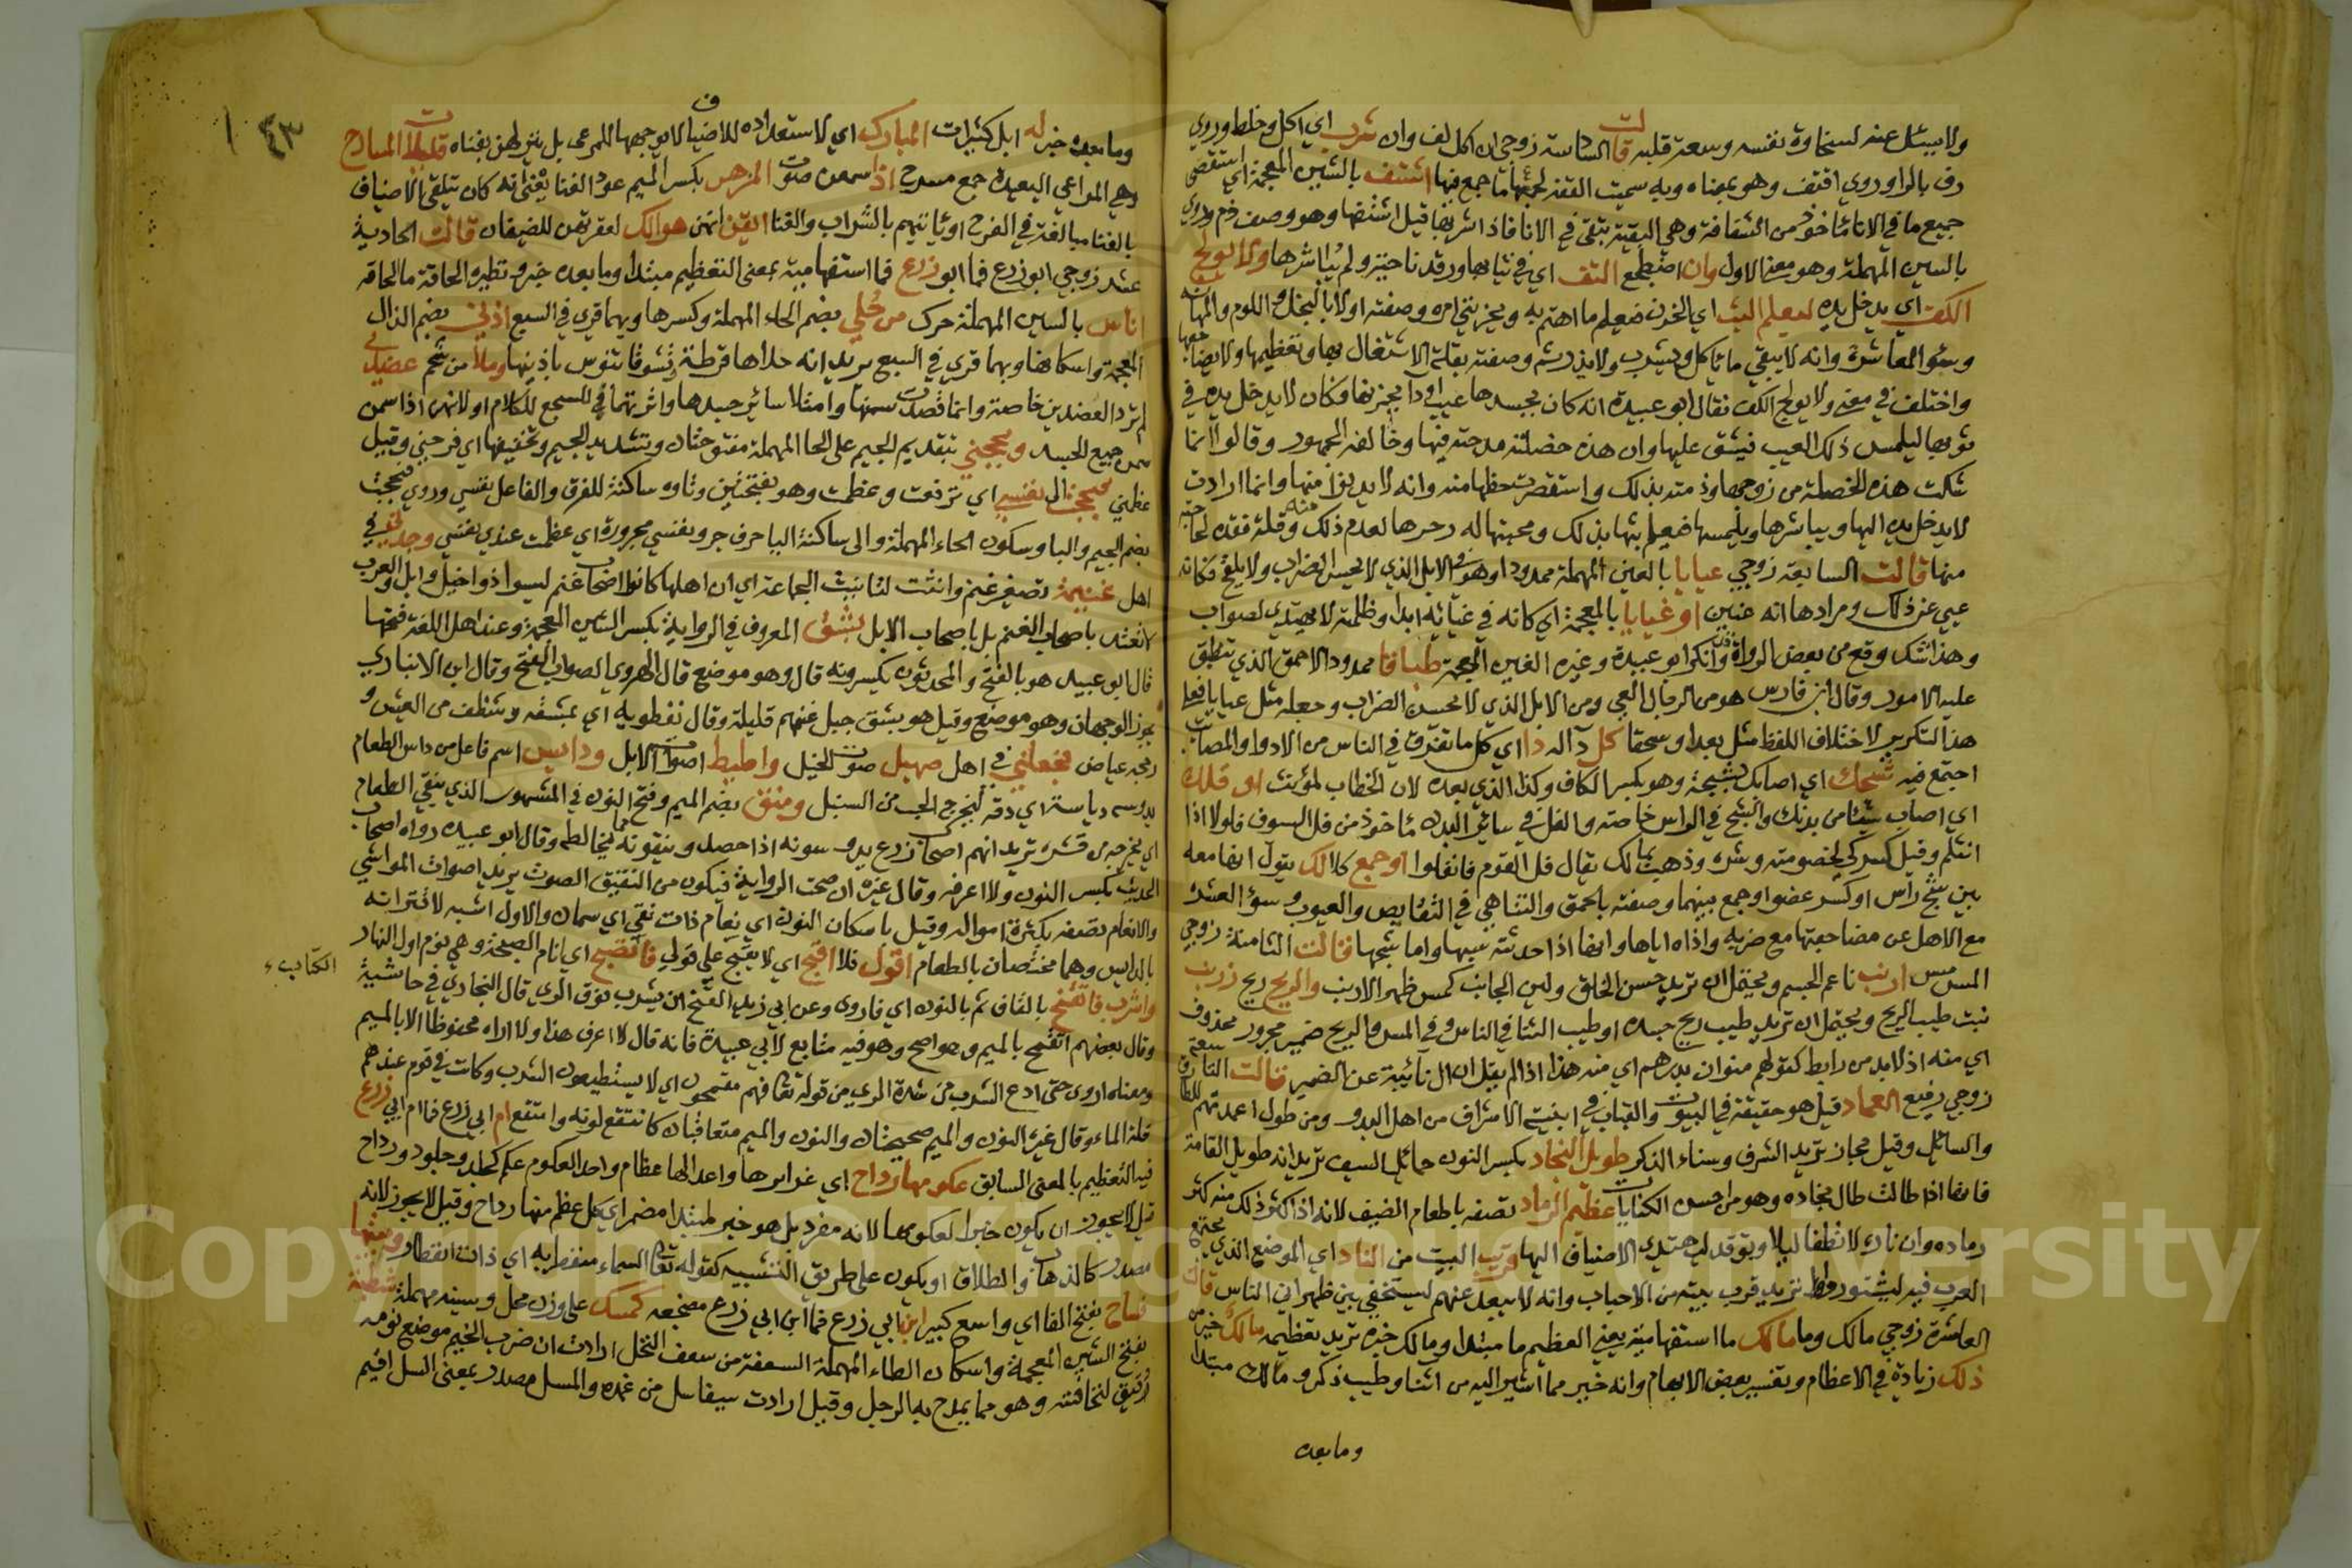 ولا يسئل عنه لسخاوة نفسه وسعة قلبه قالت السادسة زوجي ان اكل لف وان شرب اي اكل وخلط وروي
رف بالرا وروي اقتف وهو بمعناه وبه سميت القفة لجمعها ما جمع فيها اشتف بالشين المعجمة اي استقصى
جميع ما في الانا مأخوذ من الشفافة وهي البقية تبقى في الانا فاذا شربها قيل اشتفها وهو وصف ذم وروي
بالسين المهملة وهو بمعنى الاول وان اضطجع التف اي في ثيابها ورقد ناحية ولم يباشرها ولا يولج
الكف اي يدخل يده ليعلم البث اي الحزن فيعلم ما اهتم به ويحزنني امره وصفته اولا بالبخل واللوم والمهانة
وسؤ المعاشرة وانه لا يبقي ما يأكل ويشرب ولا يذر ثم وصفته بقلة الاشتغال بها وتعظيمها ولا يضاجعها
واختلف في معنى ولا يولج الكف فقال ابو عبيدة انه كان بجسدها عيب او دا يحزنها وكان لا يدخل يده في
ثوبها ليلمس ذلك العيب فيشق عليها وان هذه خصلة مدحته فيها وخالفه الجمهور وقالوا انما
شكت هذه الخصلة من زوجها وذمته بذلك واستقصرت حظها منه وانه لا يدنو منها وانما ارادت
لا يدخل يده اليها ويباشرها ويلمسها فيعلم بثها بذلك ومحبتها له وحزنها لعدم ذلك وقلة تفقده لحاجته
منها قالت السابعة زوجي عيايا بالعين المهملة ممدودا وهو من الابل الذي لا يحسن الضراب ولا يلقح فكانه
عيي عن ذلك ومرادها انه عنين او غيايا بالمعجمة اي كانه في غيايه ابدا وظلمة لا يهتدي لصواب
وهذا شك وقع من بعض الرواة وانكر ابو عبيدة وغيره الغين المعجمة طباقا ممدودا الاحمق الذي تنطبق
عليه الامور وقال ابن فارس هو من الرجال العيي ومن الابل الذي لا يحسن الضراب وجعله مثل عيايا فعلى
هذا التكرير لاختلاف اللفظ مثل بعدا وسحقا كل دآ له دا اي كل ما تفرق في الناس من الادوا والمصائب
اجتمع فيه شجك اي اصابك بشجة وهو بكسر الكاف وكذا الذي بعده لان الخطاب لمؤنث او فلك
اي اصاب شيئا من بدنك والشج في الراس خاصة والفل في سائر البدن مأخوذ من فل السيوف فلولا اذا
انثلم وقيل كسرك بخصومته وشره وذهب بمالك يقال فل القوم فانفلوا او جمع كلا لك يقول انها معه
بين شج راس او كسر عضو او جمع بينهما وصفته بالحمق والتناهي في النقايص والعيوب وسؤ العشرة
مع الاهل عن مضاجعتها مع ضربه واذاه اياها وانها اذا حدثته سبها واما شجها قالت الثامنة زوجي
المس مس ارنب ناعم الجسم ويحتمل ان تريد حسن الخلق ولين الجانب كمس ظهر الارنب والريح ريح زرنب
نبت طيب الريح ويحتمل ان تريد طيب ريح جسده او طيب الثنا في الناس وفي المس والريح ضمير مجرور محذوف
اي منه اذ لا بد من رابط كقولهم منوان بدرهم اي منه هذا اذا لم يقل ان ال نائبة عن الضمير قالت التاسعة
زوجي رفيع العماد قيل هو حقيقة في البيوت والقباب في ابنية الاشراف من اهل البدو ومن طول اعمدتهم للطارق
والسائل وقيل مجاز تريد الشرف وسناء الذكر طويل النجاد بكسر النون حمائل السيف تريد انه طويل القامة
فانها اذا طالت طال نجاده وهو من احسن الكنايات عظيم الرماد تصفه باطعام الضيف لانه اذا كثر ذلك منه كثر
رماده وان ناره لا تطفا ليلا وتوقد ليهتدي الاضياف اليها قريب البيت من الناد اي الموضع الذي يجتمع
العرب فيه ليشتوروا تريد قرب بيته من الاحباب وانه لا يبعد عنهم ليستخفي بين ظهراني الناس قالت
العاشرة زوجي مالك وما مالك ما استفهامية يعني العظيم ما مبتدا ومالك خبره تريد تعظيمه مالك خير من
ذلك زيادة في الاعظام وتفسير بعض الابهام وانه خير مما اشير اليه من اثنا وطيب ذكر و مالك مبتدا
وما بعده
٤٣
وما بعده خبر له ابل كثيرات المبارك اي لاستعداده للاضياف لا يوجهها للمرعى بل يتركهن بفناه قليلات المسارح
وهي المراعي البعيدة جمع مسرح اذا سمعن صوت المزهر بكسر الميم عود الغنا يعني انه كان يتلقى الاضياف
بالغنا مبالغة في الفرح او يأتيهم بالشراب والغنا ايقن انهن هوالك لعقرهن للضيفان قالت الحادية
عشر زوجي ابو زرع فما ابو زرع فما استفهامية بمعنى التعظيم مبتدا وما بعده خبره ونظيره الحاقة ما الحاقه
اناس بالسين المهملة حرك من حلي بضم الحاء المهملة وكسرها وبهما قري في السبع اذني بضم الذال
المعجمة واسكانها وبهما قري في السبع تريد انه حلاها قرطة وشنوفا تنوس باذنيها وملأ من شحم عضدي
لم ترد العضدين خاصة وانما قصدت سمنها وامتلا سائر جسدها واثرتهما في للسجع للكلام او لانهن اذا سمن
سمن جميع الجسد وبجحني بتقديم الجيم على الحا المهملة مفتوحتان وتشديد الجيم وتخفيفها اي فرحني وقيل
عظمني فبجحت الى نفسي اي ترفعت وعظمت وهو بفتحتين وتاوه ساكنة للفرق والفاعل نفسي وروي فبجحت
بضم الجيم والبا وسكون الحاء المهملة والى ساكنة اليا حرف جر ونفسي مجرورة اي عظمت عندي نفسي وجدني في
اهل غنيمة تصغير غنم وانثت لتانيث الجماعة اي ان اهلها كانوا اصحاب غنم ليسوا ذوا خيل وابل والعرب
لا تعتد باصحاب الغنم بل باصحاب الابل بشق المعروف في الرواية بكسر الشين المعجمة وعند اهل اللغة فتحها
قال ابو عبيد هو بالفتح والمحدثون يكسرونه قال وهو موضع قال الهروي الصواب الفتح وقال ابن الانباري
يجوز الوجهان وهو موضع وقيل هو بشق جبل غنمهم قليلة وقال نفطويه اي بمشقة وشظف من العيش و
رجحه عياض فجعلني في اهل صهيل صوت الخيل واطيط اصوات الابل ودايس اسم فاعل من داس الطعام
يدوسه دياسة اي دقه ليخرج الحب من السنبل ومنق بضم الميم وفتح النون في المشهور الذي ينقي الطعام
اي يخرجه من قشره تريد انهم اصحاب زرع يدوسونه اذا حصد وينقونه مما يخالطه وقال ابو عبيده رواه اصحاب
الحديث بكسر النون ولا اعرفه وقال غيره ان صحت الرواية فيكون من النقيق الصوت يريد اصوات المواشي
والانعام تصفه بكثرة امواله وقيل باسكان النون اي نعام ذات نقي اي سمان والاول اشبه لاقترانه
بالدايس وهما مختصان بالطعام اقول فلا اقبح اي لا يقبح علي قولي فاتصبح اي انام الصبحة وهي نوم اول النهار
واشرب فاتقنح بالقاف ثم بالنون اي فاروى وعن ابي زيد التقنح ان يشرب فوق الري قال البخاري في حاشية
الكتاب
وقال بعضهم اتقمح بالميم وهو اصح وهو فيه متابع لابي عبيدة فانه قال لا اعرف هذا ولا اراه محفوظا الا بالميم
ومعناه اروى حتى ادع الشرب من شدة الري من قوله تعا فهم مقمحون اي لا يستطيعون الشرب وكانت في قوم عندهم
قلة الماء وقال غيره النون والميم صحيحتان والنون والميم متعاقبان كانتقع لونه وامتقع ام ابي زرع فما ام ابي زرع
فيه التعظيم بالمعنى السابق عكومها رداح اي غرايرها واعدالها عظام واحد العكوم عكم كجلد وجلود ورداح
قيل لا يجوز ان يكون خبرا لعكومها لانه مفرد بل هو خبر لمبتدا مضمر اي كل عظم منها رداح وقيل لا يجوز لانه
مصدر كالذهاب والطلاق او يكون على طريق التشبيه كقوله تعا السماء منفطر به اي ذات انفطار وبيتها
فساح بفتح الفا اي واسع كبير ابن ابي زرع فما ابن ابي زرع مضجعه كمسل على وزن محل وسينه مهملة شطبة
بفتح الشين المعجمة واسكان الطاء المهملة السعفة من سعف النخل ارادت ان ضرب اللحم موضع نومه
رقيق لنحافته وهو مما يمدح به الرجل وقيل ارادت سيفا سل من غمده والمسل مصدر بمعنى السل اقيم